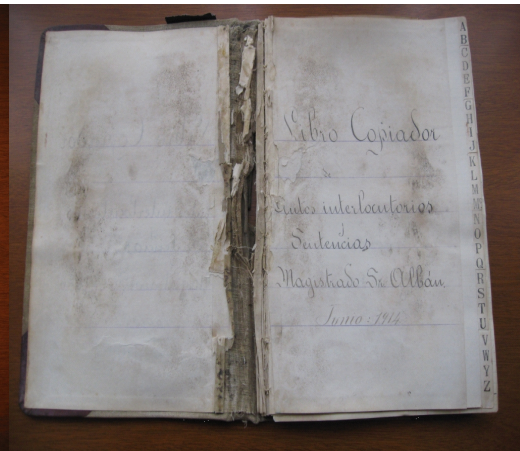 Libro Copiador
de
Autos interlocutorios
y
Sentencias
Magistrado Sr. Albán.
Junio 1914
A
B
C
D
E
F
G
H
I
J
K
L
M
N
O
P
Q
R
S
T
U
V
W
Y
Z